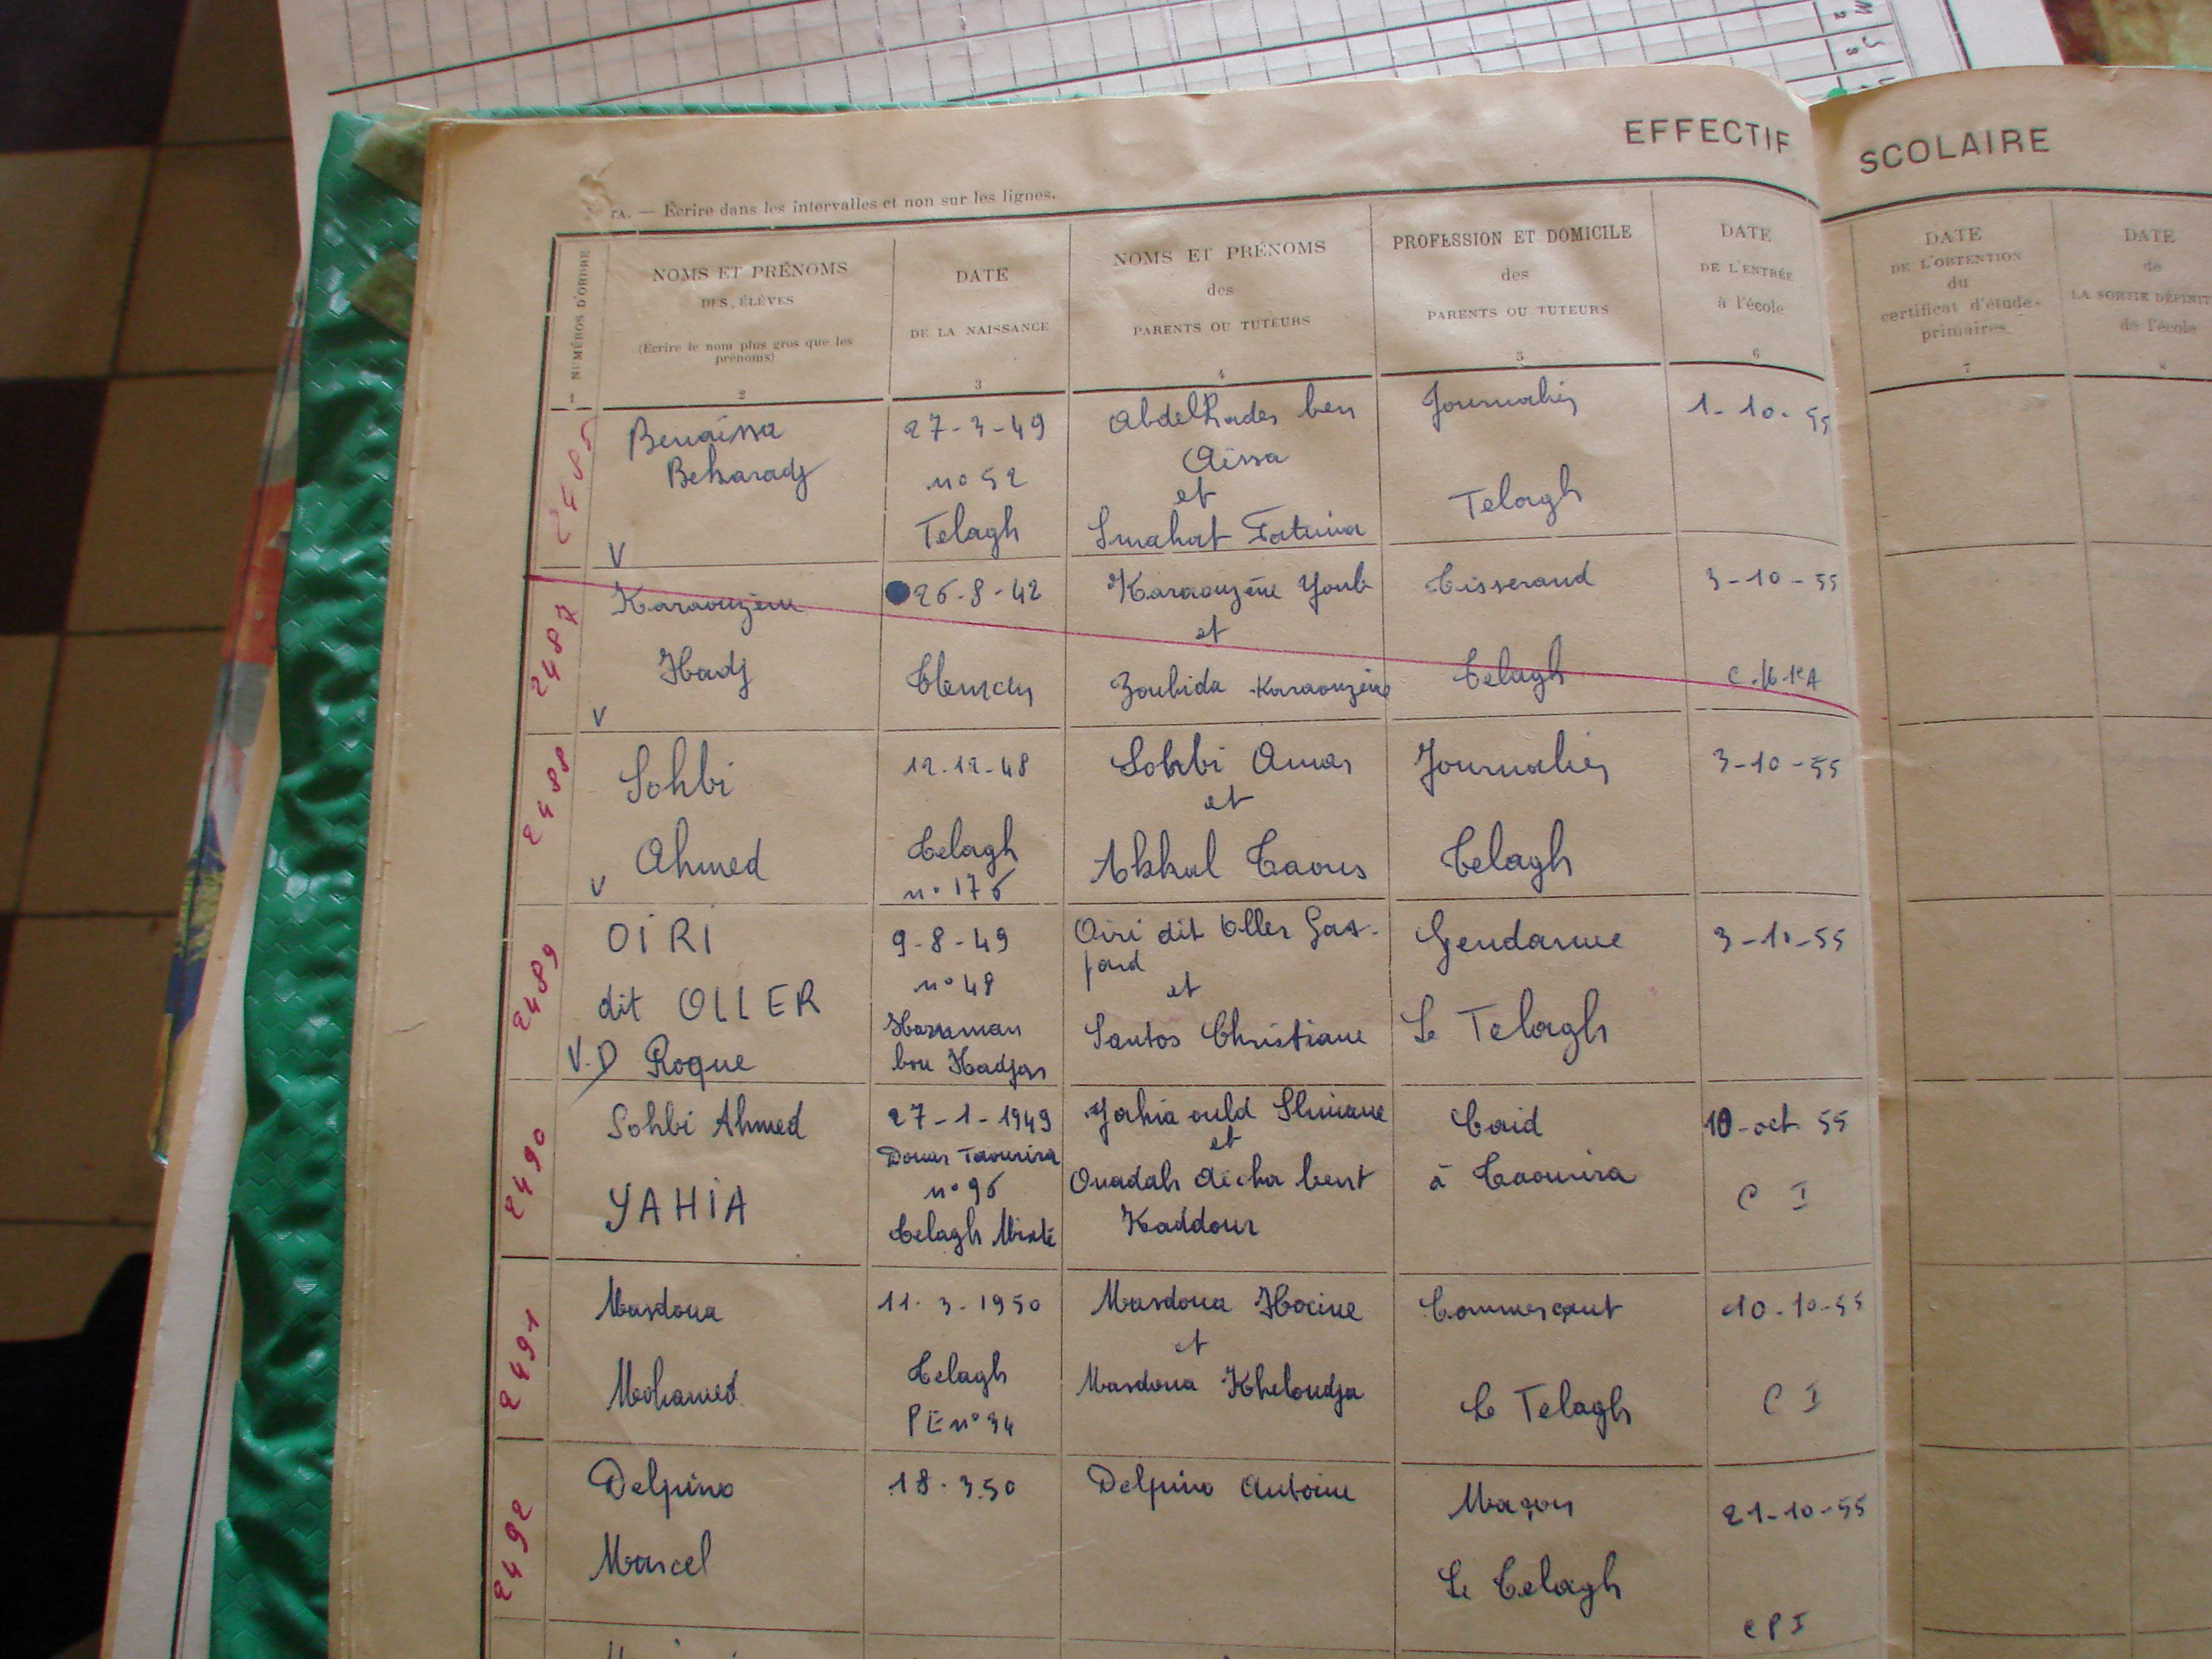 EFFECTIF SCOLAIRE
TA. — Écrire dans les intervalles et non sur les lignes.
NUMÉROS D'ORDRE
1
NOMS ET PRÉNOMS
DES ÉLÈVES
(Écrire le nom plus gros que les
prénoms)
2
DATE
DE LA NAISSANCE
3
NOMS ET PRÉNOMS
des
PARENTS OU TUTEURS
4
PROFESSION ET DOMICILE
des
PARENTS OU TUTEURS
5
DATE
DE L'ENTRÉE
à l'école
6
DATE
DE L'OBTENTION
du
certificat d'études
primaires
7
DATE
de
LA SORTIE DÉFINIT
de l'école
8
Benaissa
Bekaradj
V
27-3-49
n° 52
Telagh
Abdelkader ben
Aissa
et
Smahat Fatima
Journalier
Telagh
1-10-55
2487
Karaouzène
Hadj
V
26-8-42
Tlemcen
Karaouzène Youb
et
Zoubida Karaouzène
Tisserand
Telagh
3-10-55
2488
Sohbi
Ahmed
V
12.12-48
Telagh
n° 176
Sohbi Amar
et
Akkal Taous
Journalier
Telagh
3-10-55
2489
OIRI
dit OLLER
V.D Roque
9-8-49
n° 48
Hamman
bou Hadjar
Oiri dit Oller Gas-
pard
et
Santos Christiane
Gendarme
Le Telagh
3-10-55
2490
Sohbi Ahmed
YAHIA
27-1-1949
Douar Taourira
n° 96
Telagh Mixte
Yahia ould Slimane
et
Ouadah Aicha bent
Kaddour
Caid
à Taourira
10-oct. 55
C I
2491
Masdoua
Mohamed
11.3.1950
Telagh
PE n° 34
Masdoua Hocine
et
Masdoua Kheloudja
Commerçant
Le Telagh
10-10-55
C I
2492
Delpino
Marcel
18.3.50
Delpino Antoine
Maçon
Le Telagh
21-10-55
CPI